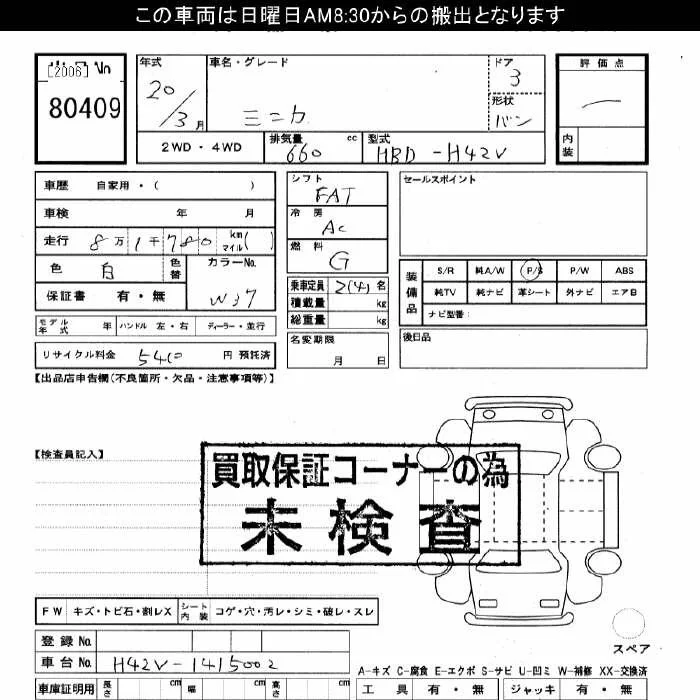 この車両は日曜日AM8:30からの搬出となります
[2006]
80409
年式
20/3月
車名・グレード
ミニカ
ドア
3
形状
バン
評価点
内装
2WD・4WD
排気量 cc
660
型式
HBD-H42V
車歴 自家用・( )
車検 年 月
走行 8万1千780 km マイル( )
色 白 色替
カラーNo.
W37
保証書 有・無
シフト
FAT
冷房
AC
燃料
G
乗車定員 2(4)名
積載量 kg
総重量 kg
セールスポイント
装備品
S/R 純A/W P/S P/W ABS
純TV 純ナビ 革シート 外ナビ エアB
ナビ型番:
モデル年式 年 ハンドル 左・右 ディーラー・並行
名変期限
月 日
後日品
リサイクル料金 5410 円 預託済
【出品店申告欄(不良箇所・欠品・注意事項等)】
【検査員記入】
買取保証コーナーの為
未検査
FW キズ・トビ石・割レX シート内装 コゲ・穴・汚レ・シミ・破レ・スレ
スペア
登録No.
車台No. H42V-1415002
A-キズ C-腐食 E-エクボ S-サビ U-凹ミ W-補修 XX-交換済
車庫証明用 長さ cm 幅 cm 高さ cm
工具 有・無 ジャッキ 有・無